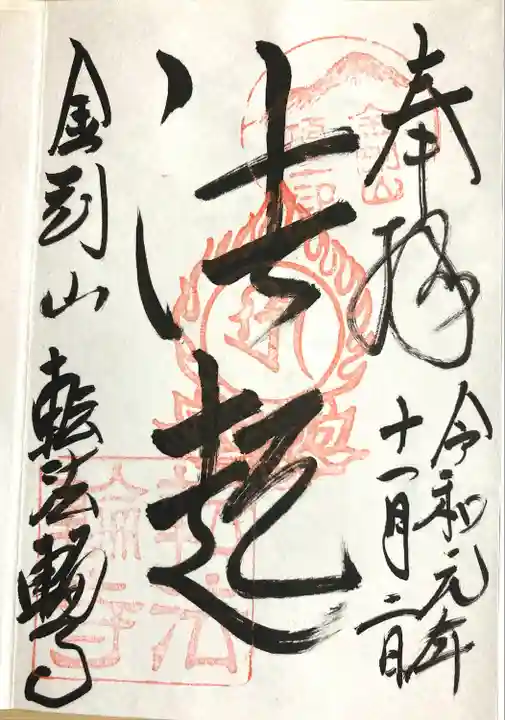 奉拝
令和元年
十一月二日
法起
金剛山 転法輪寺
転法
輪寺